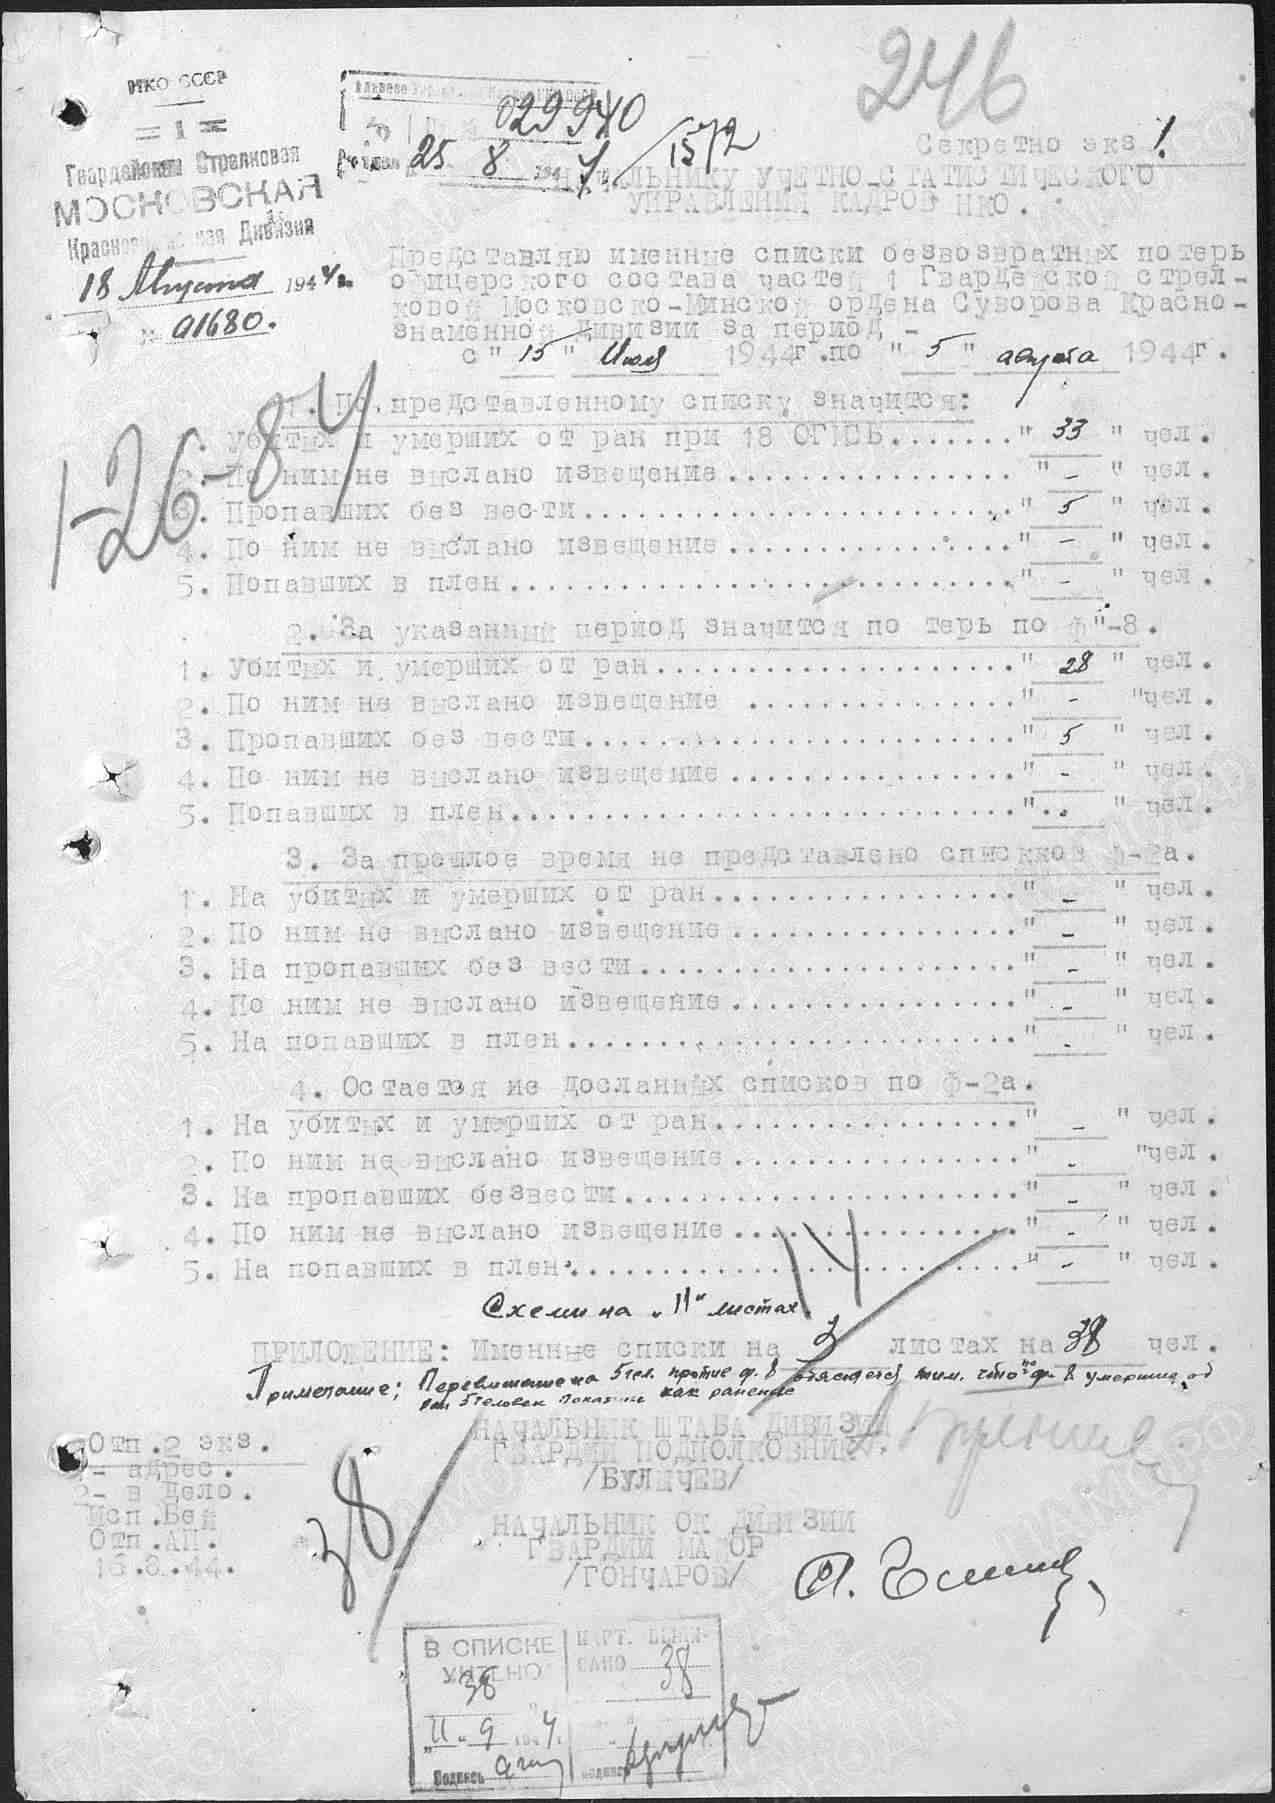 246
НКО СССР
= 1 =
Гвардейская Стрелковая
МОСКОВСКАЯ
Дивизия
18 Августа 1944 г.
№ 01680.
029940
25 8 1944
1572
Секретно экз 1.
НАЧАЛЬНИКУ УЧЕТНО-СТАТИСТИЧЕСКОГО
УПРАВЛЕНИЯ КАДРОВ НКО.
Представляю именные списки безвозвратных потерь
офицерского состава частей 1 Гвардейской стрел-
ковой Московско-Минской ордена Суворова Красно-
знаменной дивизии за период -
с "15" Июля 1944г.по "5" августа 1944г.
1-26-84
1. По представленному списку значится:
1. Убитых и умерших от ран при 18 ОГИСБ......."33" чел.
2. По ним не выслано извещение................"-" чел.
3. Пропавших без вести........................"5" чел.
4. По ним не выслано извещение................"-" чел.
5. Попавших в плен............................"-" чел.
2. За указанный период значится по терь по ф"-8.
1. Убитых и умерших от ран...................."28" чел.
2. По ним не выслано извещение ..............."-"чел.
3. Пропавших без вести........................"5" чел.
4. По ним не выслано извещение................"-" чел.
5. Попавших в плен............................"-" чел.
3. За прошлое время не представлено спискков ф-2а.
1. На убитых и умерших от ран................."-" чел.
2. По ним не выслано извещение................"-" чел.
3. На пропавших без вести....................."-" чел.
4. По ним не выслано извещение................"-" чел.
5. На попавших в плен........................."-" чел.
4. Остается не досланных списков по ф-2а.
1. На убитых и умерших от ран................."-" чел.
2. По ним не выслано извещение................"-"чел.
3. На пропавших безвести......................"-" чел.
4. По ним не выслано извещение................"-" чел.
5. На попавших в плен........................."-" чел.
14
Схеми на "11" листах.
ПРИЛОЖЕНИЕ: Именные списки на 3 листах на 38 чел.
Примечание; Превышение на 5 чел. против ф. 8 объясняется тим. что по ф 8 умершие от
ран 5 человек показаны как ранение
НАЧАЛЬНИК ШТАБА ДИВИЗИИ
ГВАРДИИ ПОДПОЛКОВНИК
/БУЛЫЧЕВ/
НАЧАЛЬНИК ОК ДИВИЗИИ
ГВАРДИИ МАЙОР
/ГОНЧАРОВ/
Отп.2 экз.
1- адрес.
2- в дело.
Исп.Бей
Отп.АП.
16.8.44.
38
В СПИСКЕ
УЧТЕНО
38
"11" 9 1944.
Подпись
КАРТ. ВЫПИ-
САНО 38
Подпись